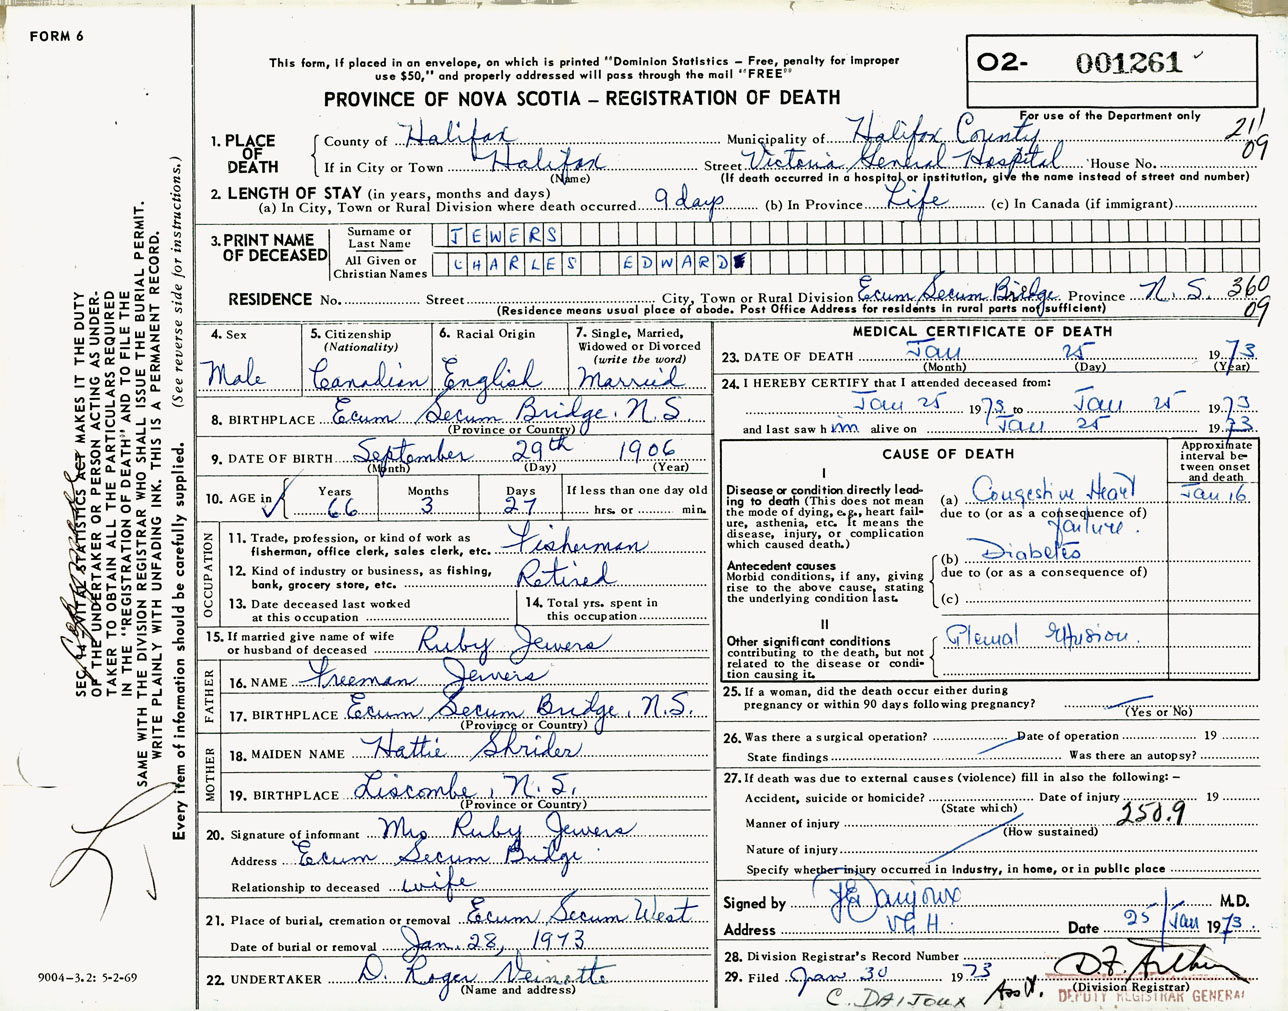 FORM 6
This form, if placed in an envelope, on which is printed "Dominion Statistics – Free, penalty for improper
use $50," and properly addressed will pass through the mail "FREE"
PROVINCE OF NOVA SCOTIA – REGISTRATION OF DEATH
O2- 001261
For use of the Department only
211
09
1. PLACE OF DEATH
County of Halifax Municipality of Halifax County
If in City or Town Halifax Street Victoria General Hospital House No.
(Name) (If death occurred in a hospital or institution, give the name instead of street and number)
2. LENGTH OF STAY (in years, months and days)
(a) In City, Town or Rural Division where death occurred 9 days (b) In Province Life (c) In Canada (if immigrant)
3. PRINT NAME OF DECEASED
Surname or Last Name JEWERS
All Given or Christian Names CHARLES EDWARD
RESIDENCE No. Street City, Town or Rural Division Ecum Secum Bridge Province N.S. 360
09
(Residence means usual place of abode. Post Office Address for residents in rural parts not sufficient)
4. Sex
Male
5. Citizenship
(Nationality)
Canadian
6. Racial Origin
English
7. Single, Married,
Widowed or Divorced
(write the word)
Married
8. BIRTHPLACE Ecum Secum Bridge, N.S.
(Province or Country)
9. DATE OF BIRTH September 29th 1906
(Month) (Day) (Year)
10. AGE in
Years Months Days If less than one day old
66 3 27 hrs. or min.
OCCUPATION
11. Trade, profession, or kind of work as
fisherman, office clerk, sales clerk, etc. Fisherman
12. Kind of industry or business, as fishing,
bank, grocery store, etc. Retired
13. Date deceased last worked
at this occupation
14. Total yrs. spent in
this occupation
15. If married give name of wife
or husband of deceased Ruby Jewers
FATHER
16. NAME Freeman Jewers
17. BIRTHPLACE Ecum Secum Bridge, N.S.
(Province or Country)
MOTHER
18. MAIDEN NAME Hattie Shrider
19. BIRTHPLACE Liscombe, N.S.
(Province or Country)
20. Signature of informant Mrs Ruby Jewers
Address Ecum Secum Bridge
Relationship to deceased wife
21. Place of burial, cremation or removal Ecum Secum West
Date of burial or removal Jan. 28, 1973
22. UNDERTAKER D. Roger Veinotte
(Name and address)
MEDICAL CERTIFICATE OF DEATH
23. DATE OF DEATH Jan 25 1973
(Month) (Day) (Year)
24. I HEREBY CERTIFY that I attended deceased from:
Jan 25 1973 to Jan 25 1973
and last saw him alive on Jan 25 1973
CAUSE OF DEATH
Approximate
interval be-
tween onset
and death
I
Disease or condition directly lead-
ing to death (This does not mean
the mode of dying, e.g., heart fail-
ure, asthenia, etc. It means the
disease, injury, or complication
which caused death.)
(a) Congestive Heart Jan 16
due to (or as a consequence of)
failure.
Antecedent causes
Morbid conditions, if any, giving
rise to the above cause, stating
the underlying condition last.
(b) Diabetes
due to (or as a consequence of)
(c)
II
Other significant conditions
contributing to the death, but not
related to the disease or condi-
tion causing it.
Pleural Effusion.
25. If a woman, did the death occur either during
pregnancy or within 90 days following pregnancy?
(Yes or No)
26. Was there a surgical operation? Date of operation 19
State findings Was there an autopsy?
27. If death was due to external causes (violence) fill in also the following: –
Accident, suicide or homicide? Date of injury 19
(State which)
Manner of injury 250.9
(How sustained)
Nature of injury
Specify whether injury occurred in Industry, in home, or in public place
Signed by M.D.
Address V.G.H. Date 25 Jan 1973.
28. Division Registrar's Record Number
29. Filed Jan 30 1973
(Division Registrar)
DEPUTY REGISTRAR GENERAL
C. DAIJOUX
SEC. 14 VITAL STATISTICS ACT MAKES IT THE DUTY
OF THE UNDERTAKER OR PERSON ACTING AS UNDER-
TAKER TO OBTAIN ALL THE PARTICULARS REQUIRED
IN THE "REGISTRATION OF DEATH" AND TO FILE THE
SAME WITH THE DIVISION REGISTRAR WHO SHALL ISSUE THE BURIAL PERMIT.
WRITE PLAINLY WITH UNFADING INK. THIS IS A PERMANENT RECORD.
Every item of information should be carefully supplied. (See reverse side for instructions.)
9004–3.2: 5-2-69